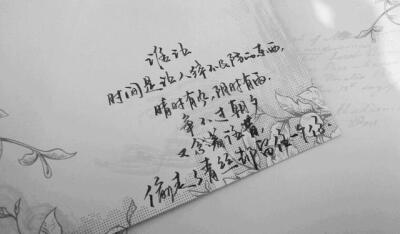 谁说
时间是让人猝不及防的东西,
晴时有风阴时有雨,
争不过朝夕
又念着往昔,
偷走了青丝却留住一个你